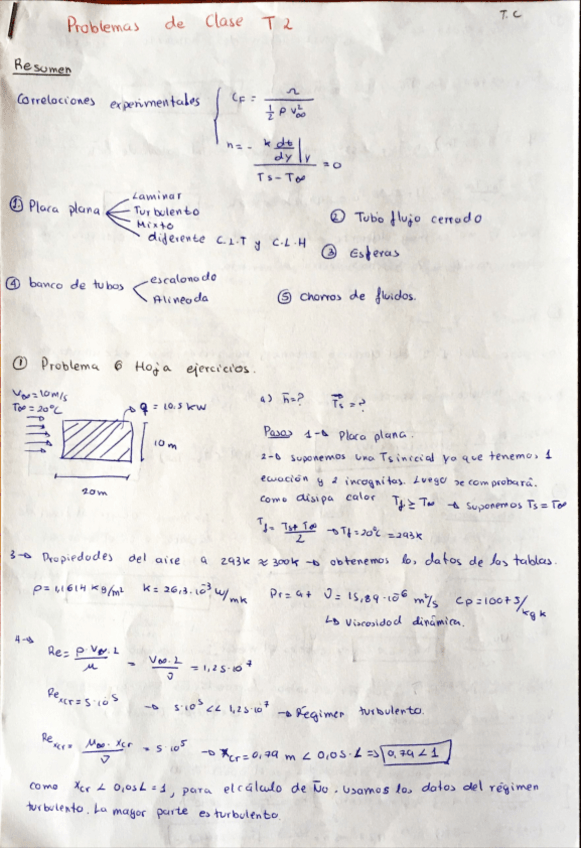 Problemas de Clase T2
T.C
Resumen
Correlaciones experimentales
CF = τ / (1/2 ρ V∞²)
h = - k dt/dy|y / (Ts - T∞) = 0
① Placa plana
Laminar
Turbulento
Mixto
diferente C.L.T y C.L.H
② Tubo flujo cerrado
③ Esferas
④ banco de tubos
escalonado
Alineada
⑤ Chorros de fluidos.
① Problema 6 Hoja ejercicios.
V∞ = 10 m/s
T∞ = 20°C
q = 10.5 kW
10 m
20m
a) h̄ = ? Ts = ?
Pasos 1→ Placa plana.
2→ suponemos una Ts inicial ya que tenemos 1
ecuación y 2 incognitas. Luego se comprobará.
como disipa calor Tf ≥ T∞ → Suponemos Ts = T∞
Tf = Ts + T∞ / 2 → Tf = 20°C = 293k
3→ Propiedades del aire a 293k ≈ 300k → obtenemos los datos de las tablas.
ρ = 1,1614 kg/m² K = 26,3·10⁻³ W/mk Pr = 0,7 ν = 15,89·10⁻⁶ m²/s Cp = 1007 J/kg k
↳ Viscosidad dinámica.
4→
Re = ρ·V∞·L / μ = V∞·L / ν = 1,25·10⁷
Re xcr = 5·10⁵ → 5·10⁵ << 1,25·10⁷ → Régimen turbulento.
Re xcr = μ∞·xcr / ν = 5·10⁵ → xcr = 0,79 m < 0,05·L ⇒ 0,79 < 1
como xcr < 0,05L = 1, para el cálculo de N̄u. usamos los datos del régimen
turbulento. La mayor parte es turbulento.